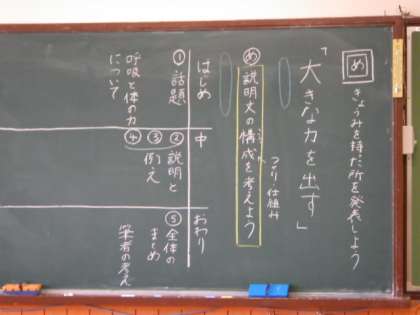 め
きょうみを持った所を発表しよう
「大きな力を出す」
つくり 仕組み
め 説明文の構成を考えよう
はじめ
① 話題
呼吸と体の力
について
中
② 説明と
③ 例え
④
おわり
⑤ 全体の
まとめ
筆者の考え